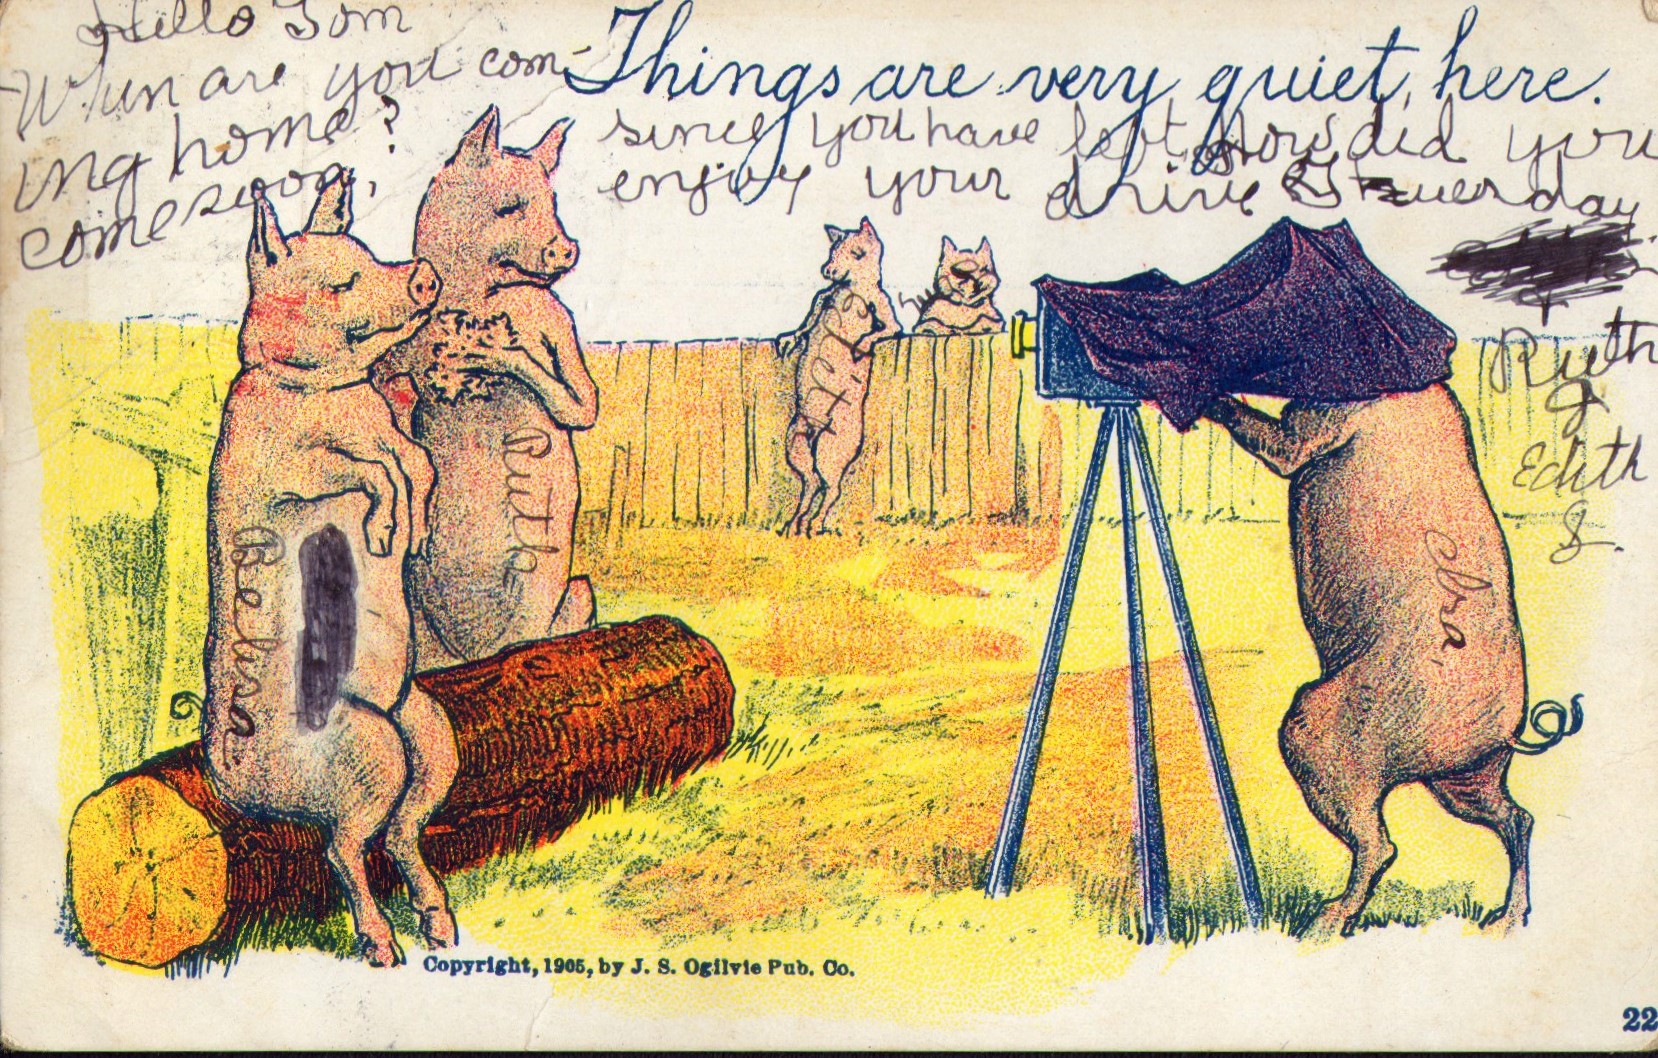 Hello Tom
When are you com-
ing home?
come soon,
Things are very quiet, here.
since you have left, How did you
enjoy your drive
day
Ruth
&
Edith
S.
Belisa
Ruth
Clara,
Copyright, 1905, by J. S. Ogilvie Pub. Co.
22